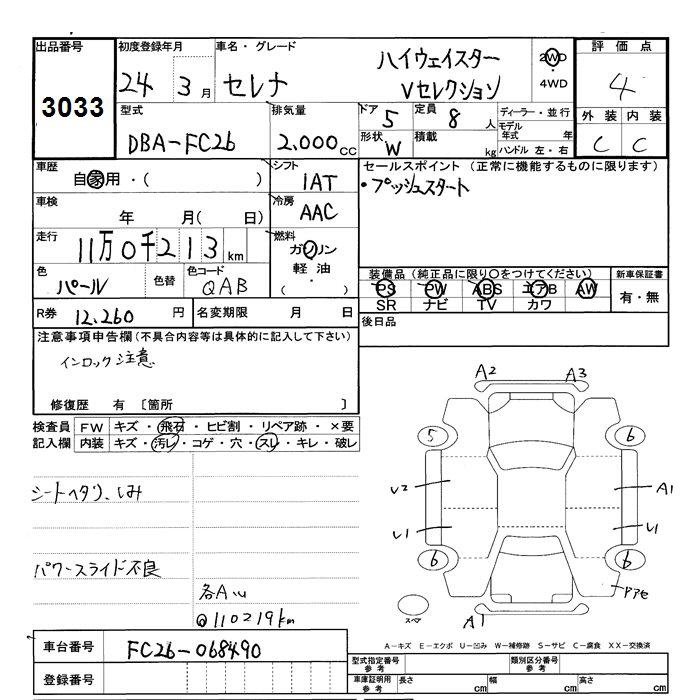 出品番号
3033
初度登録年月
24 3月
車名・グレード
セレナ
ハイウェイスター
Vセレクション
2WD
・
4WD
評価点
4
外装 内装
C C
型式
DBA-FC26
排気量
2.000cc
ドア
5
定員
8人
形状
W
積載
kg
ディーラー・並行
モデル年式 年
ハンドル 左・右
車歴
自家用・( )
シフト
IAT
冷房
AAC
車検
年 月( 日)
走行
11万0千213km
燃料
ガソリン
軽油・
( )
色
パール
色替
色コード
QAB
R券
12,260円
名変期限 月 日
セールスポイント(正常に機能するものに限ります)
・プッシュスタート
装備品(純正品に限り○をつけてください)
PS PW ABS エアB AW
SR ナビ TV カワ
新車保証書
有・無
後日品
注意事項申告欄(不具合内容等は具体的に記入して下さい)
インロック注意
修復歴 有 〔箇所 〕
検査員記入欄
FW キズ・飛石・ヒビ割・リペア跡・×要
内装 キズ・汚レ・コゲ・穴・スレ・キレ・破レ
シートヘタリ、しみ
パワースライド不良
各A.U
@110219km
A2 A3
5 6
U2 A1
U1 U1
6 6
Pアセ
スペア
A1
A-キズ E-エクボ U-凹み W-補修跡 S-サビ C-腐食 XX-交換済
車台番号
FC26-068490
登録番号
型式指定番号
参考
類別区分番号
参考
車庫証明用
参考
長さ cm
幅 cm
高さ cm